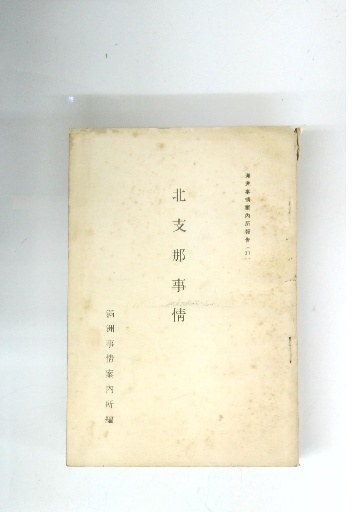 満洲事情案内所報告(21)
北支那事情
満洲事情案内所編